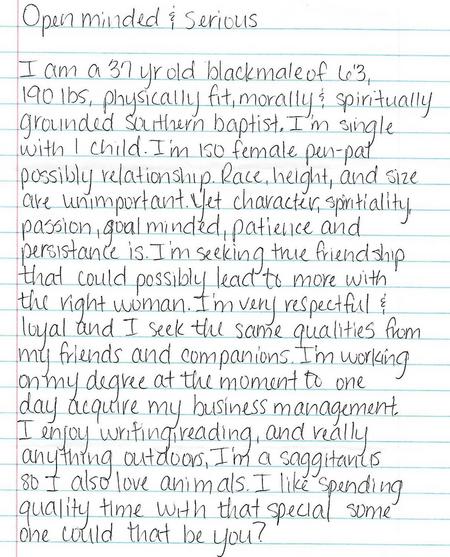 Open minded & Serious
I am a 37 yr old black male of 6'3,
190 lbs, physically fit, morally & spiritually
grounded southern baptist. I'm single
with 1 child. I'm ISO female pen-pal
possibly relationship. Race, height, and size
are unimportant. Yet character, spiritiality,
passion, goal minded, patience and
persistance is. I'm seeking true friendship
that could possibly lead to more with
the right woman. I'm very respectful &
loyal and I seek the same qualities from
my friends and companions. I'm working
on my degree at the moment to one
day acquire my business management.
I enjoy writing, reading, and really
anything outdoors, I'm a saggitarius
so I also love animals. I like spending
quality time with that special some
one could that be you?